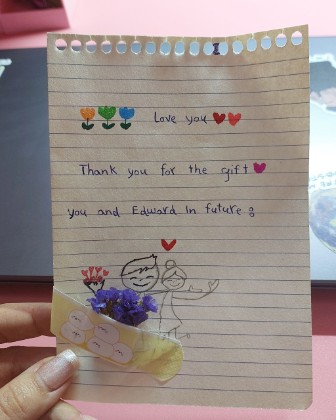 Love you
Thank you for the gift
you and Edward In future :